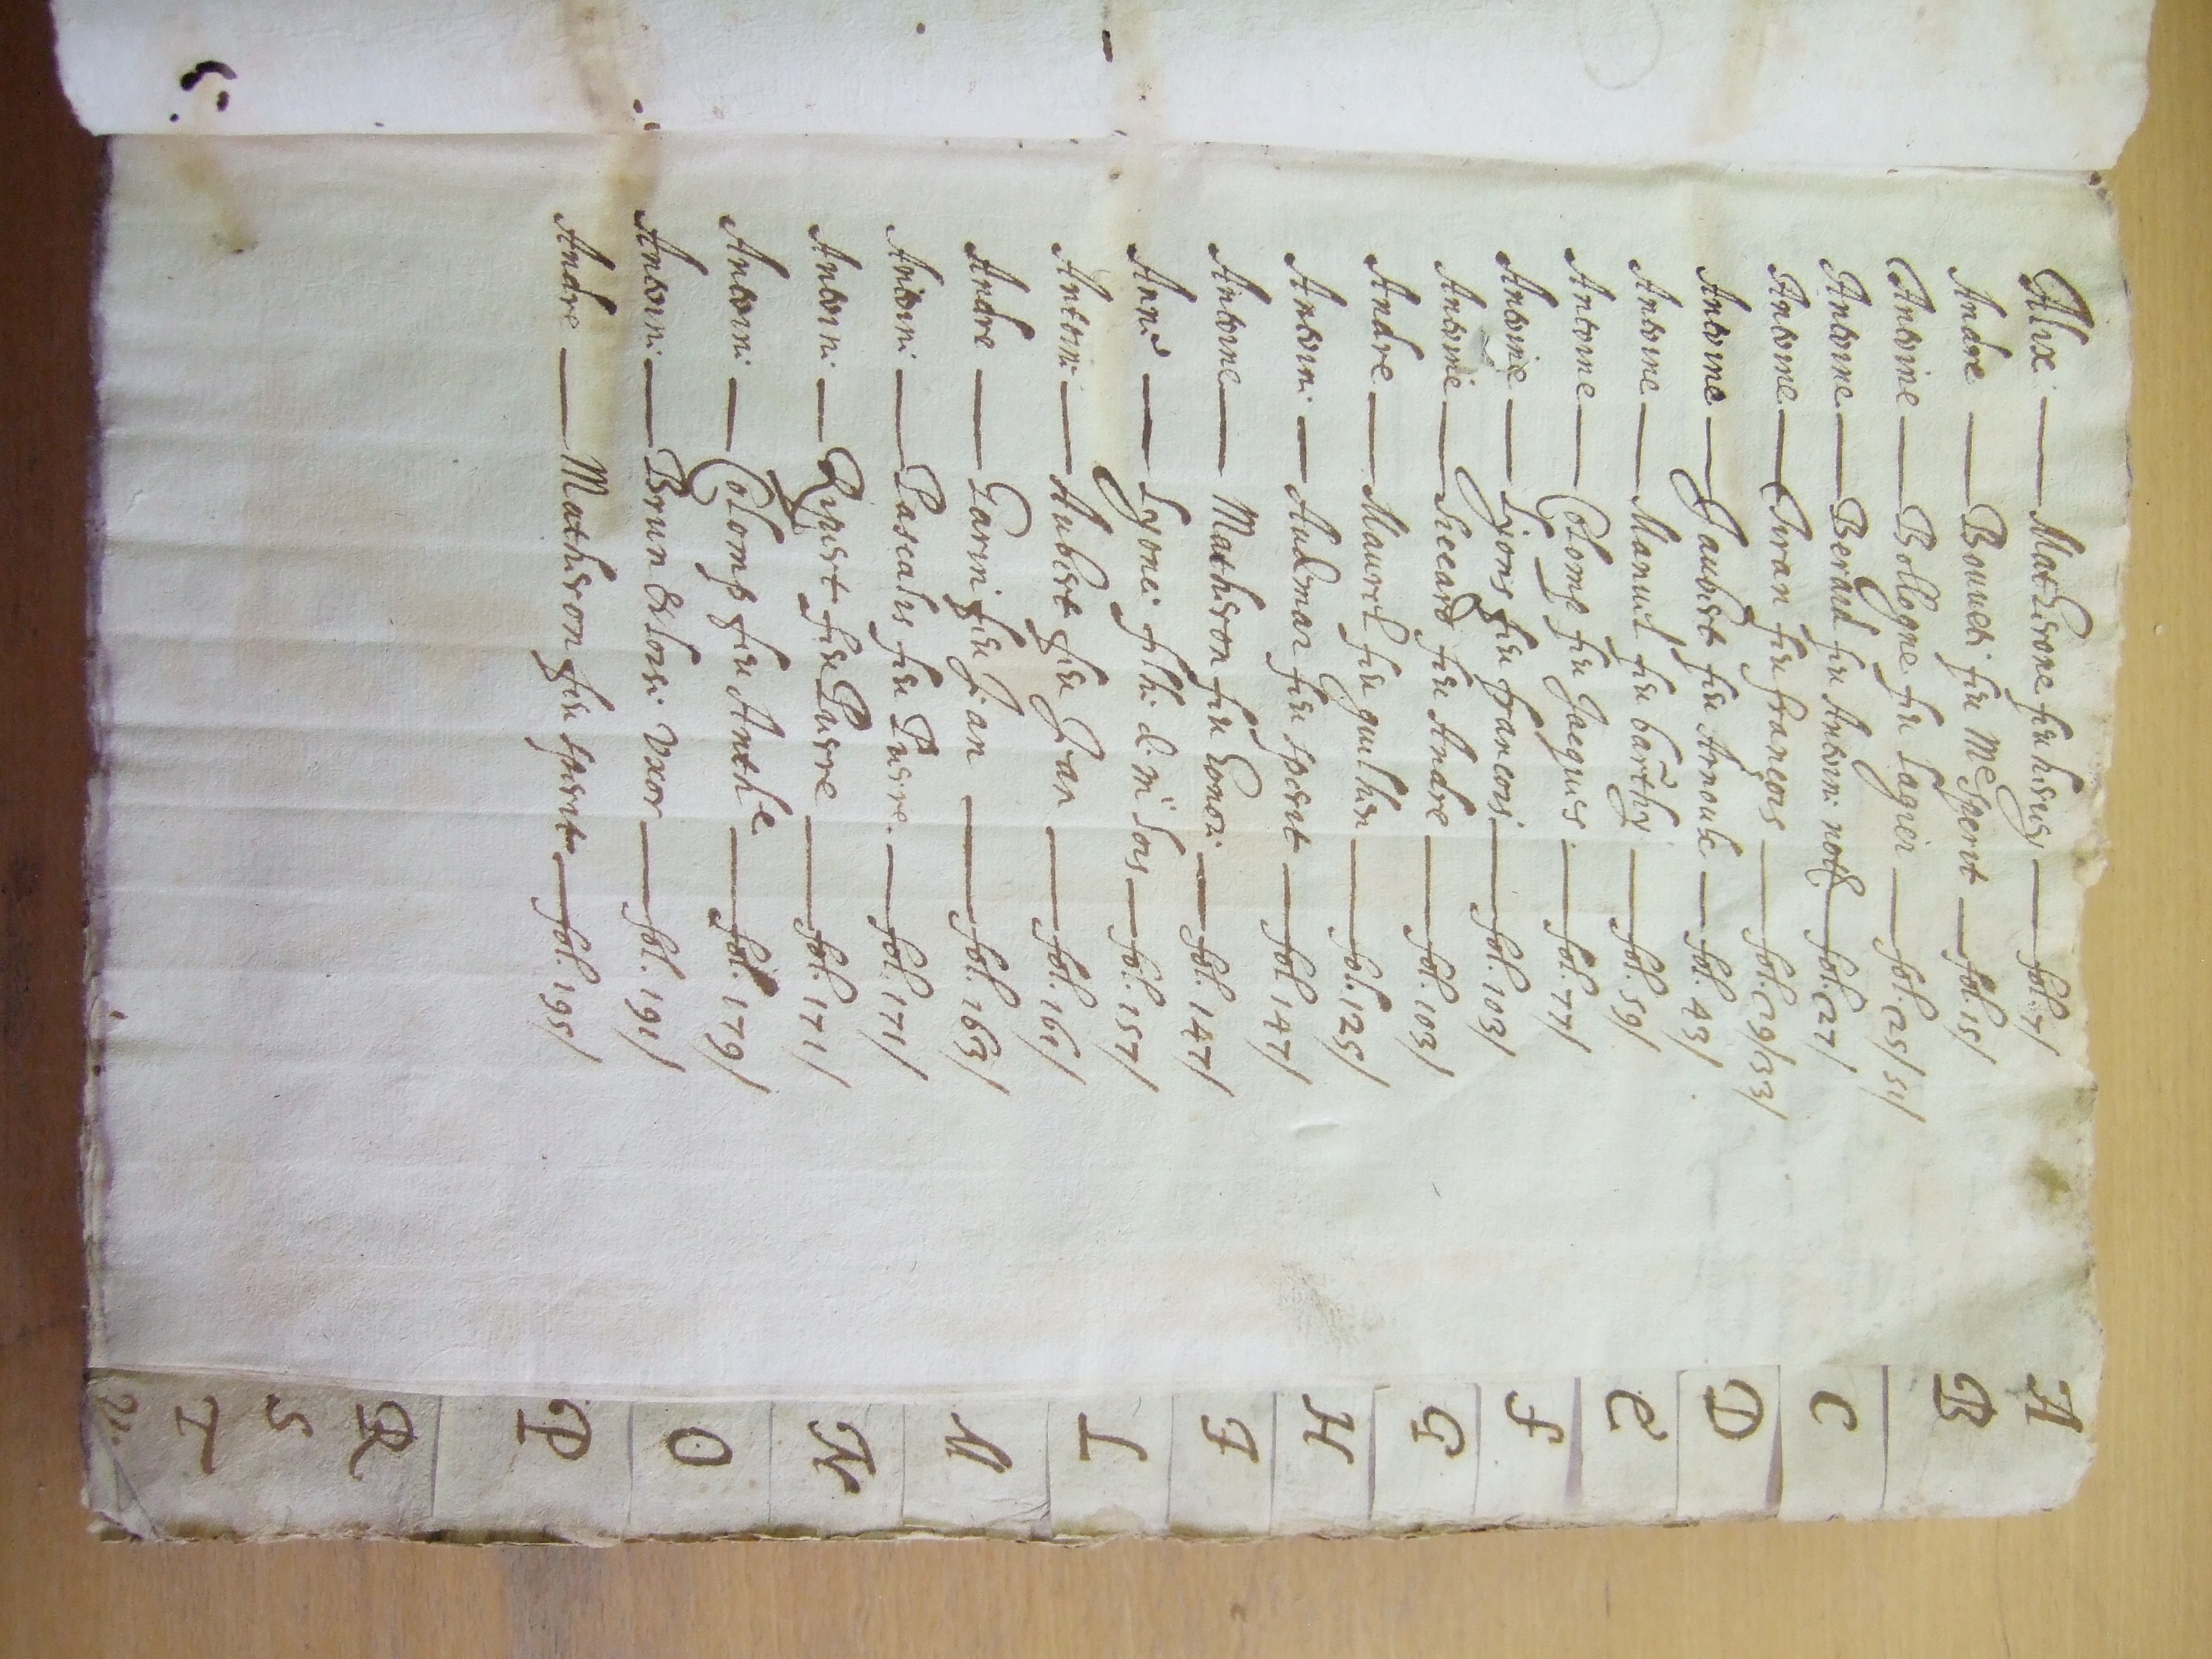 Alix — Mathieone fiu hieug — fol. 7/
Andre — Bouueti fiu Me Sperit — fol. 15/
Antoine — Bollogne fiu Lagier — fol. 25/51/
Antoine — Berard fiu Antoni not. — fol. 27/
Antoine — fiu françois — fol. 29/33/
Antoine — Jaubert fiu Arnoulx — fol. 43/
Antoine — Manuel fiu barthy — fol. 59/
Antoine — Colomp fiu Jacques — fol. 77/
Antoine — Lyons fiu francois — fol. 103/
Antoine — Siccard fiu Andre — fol. 103/
Andre — Maurel fiu guilhen — fol. 125/
Antoni — Audmar fiu sperit — fol 147/
Antoine — Matheron fiu honor — fol. 147/
Anne — Lyone filhi d m Loys — fol. 157/
Antoni — Aubert fiu Jean — fol. 161/
Andre — Garin fiu Jean — fol. 163/
Antoni — Pascalis fiu Pierre — fol. 171/
Antoni — Ripert fiu Pierre — fol. 171/
Antoni — Colomp fiu Anthe — fol. 179/
Antoni — Brun & Uxor — fol. 191/
Andre — Matheron fiu sperit — fol. 195/
A
B
C
D
E
F
G
H
J
L
N
O
P
R
S
T